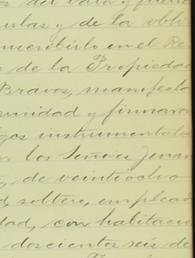 ulas y de la obli
inscribirlo en el Re
o de la Propiedad
Bravos, manifestó
ormidad y firmaron
igos instrumentales
on los Señores Jenar
, de veintiocho
d, soltero, emplead
dad, con habitació
doscientos seis de